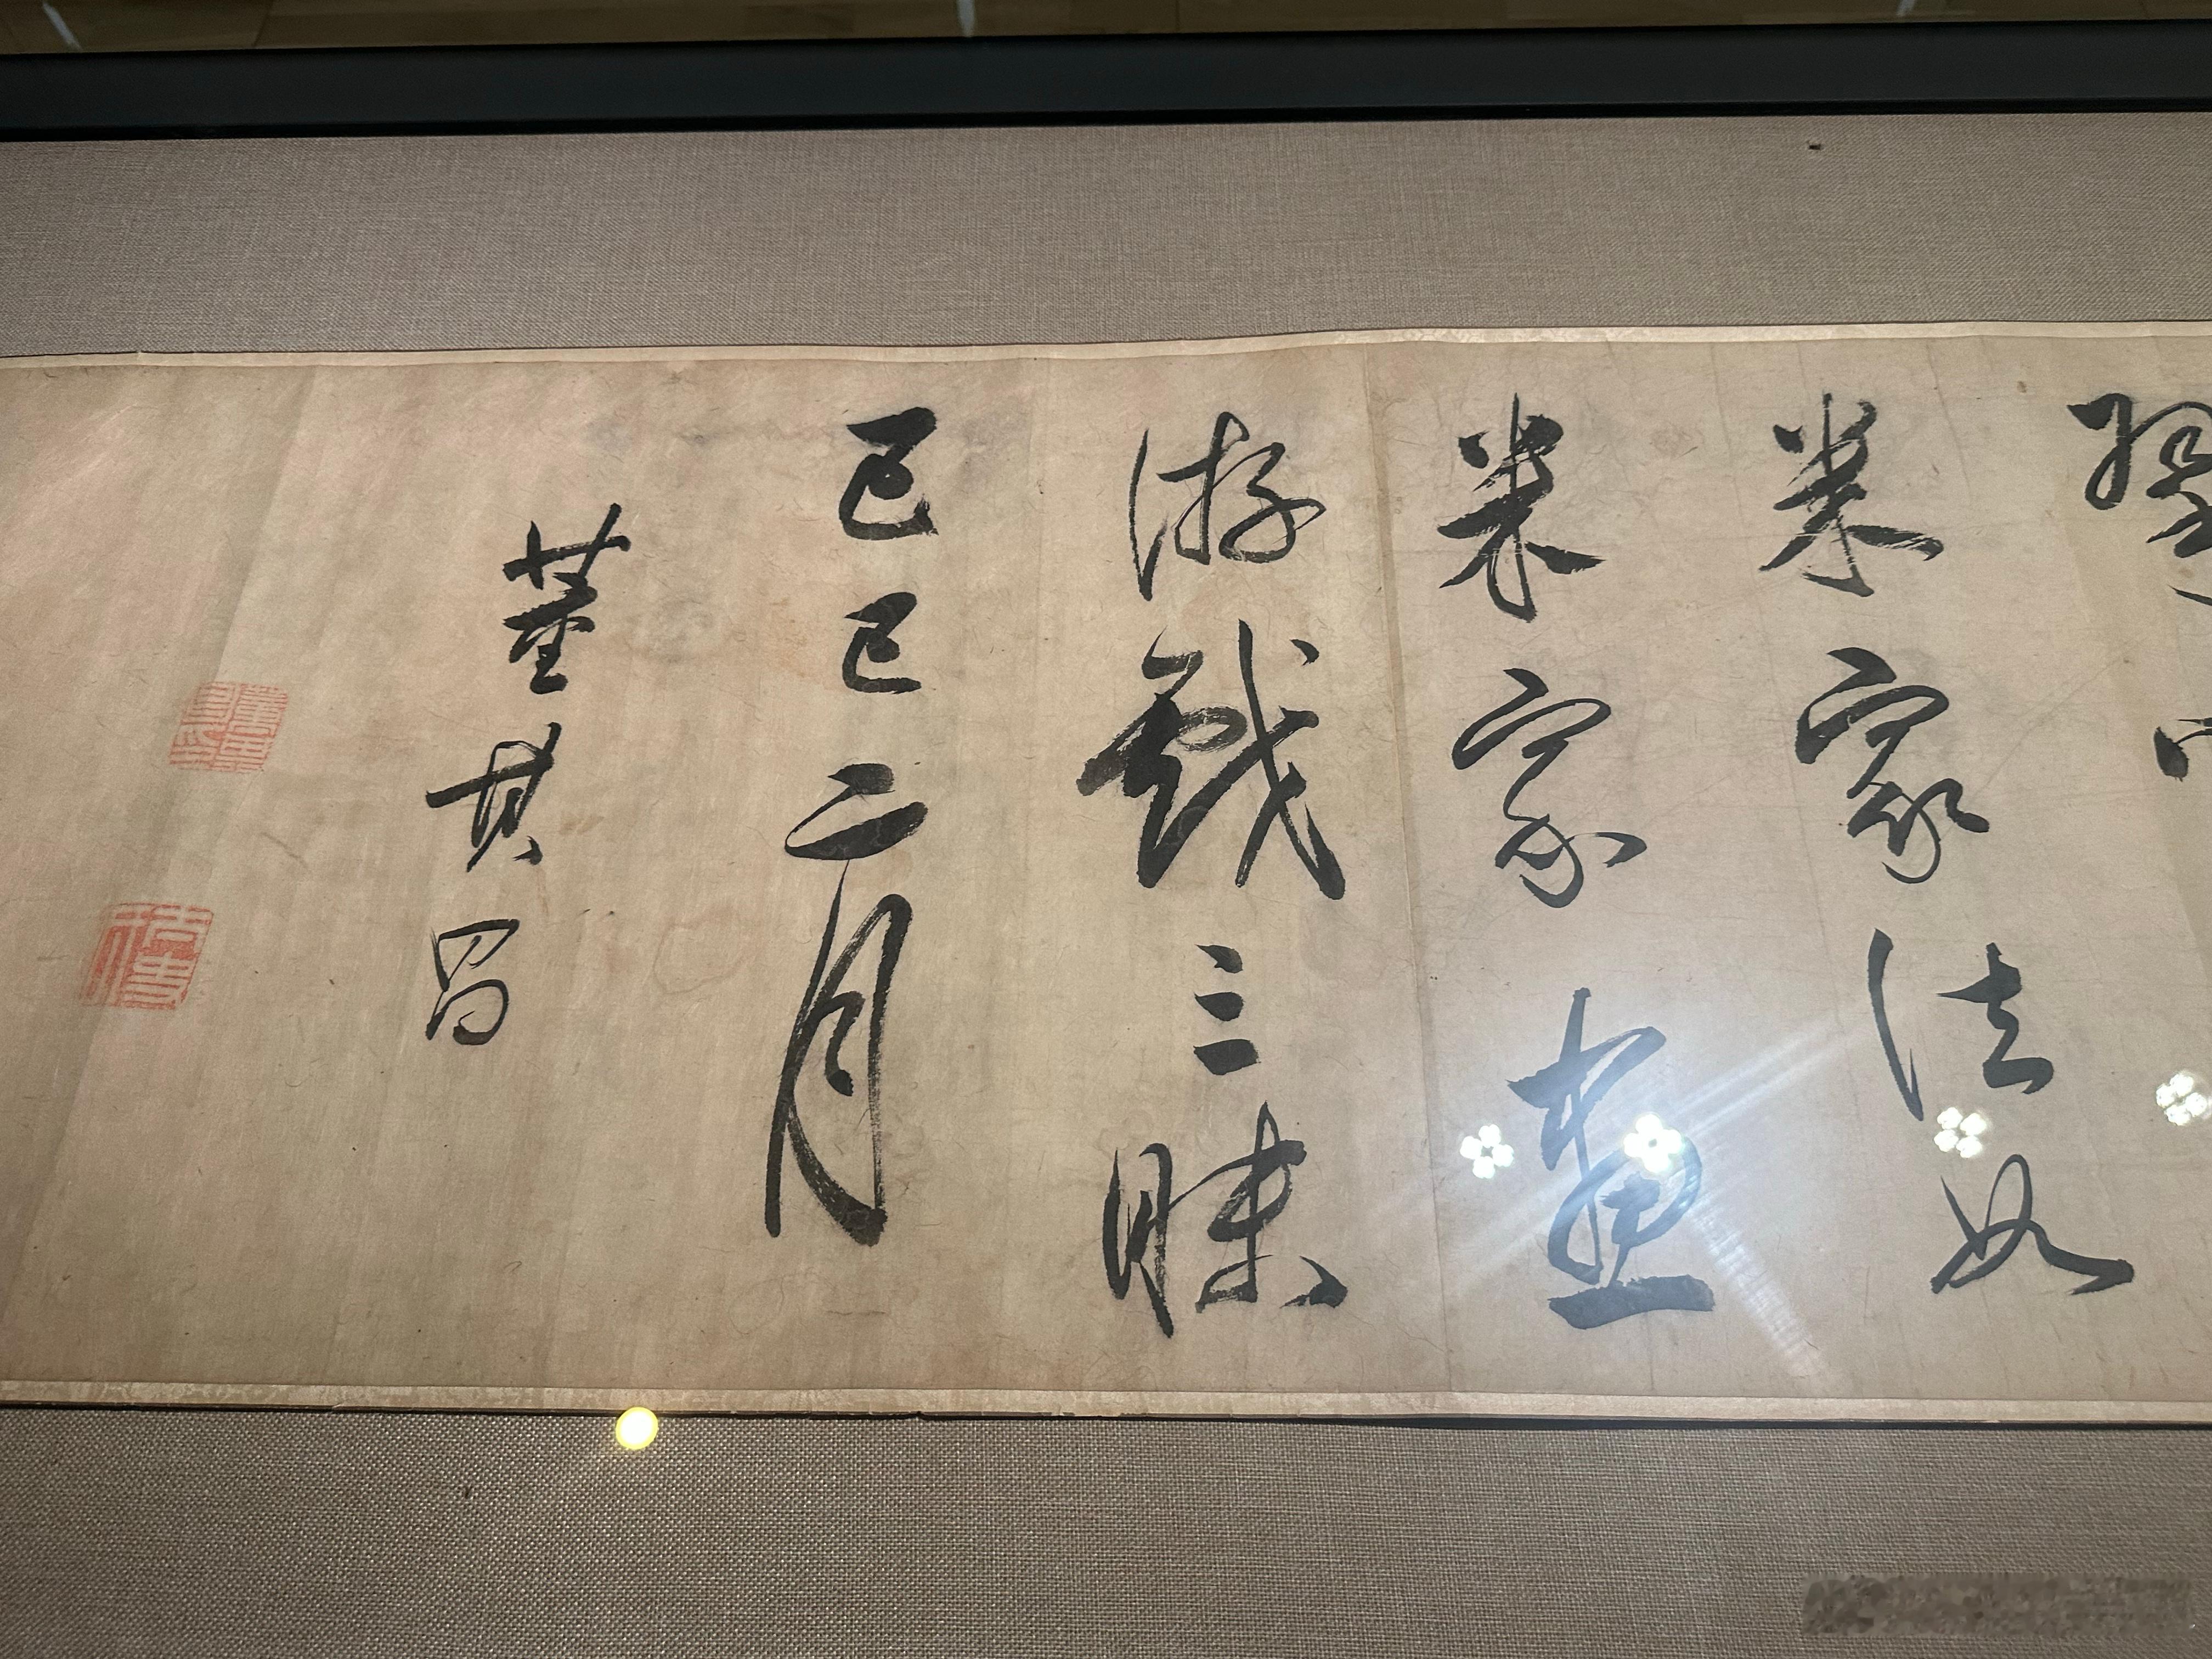 米家法如
米家畫
游戲三昧
己巳二月
董其昌